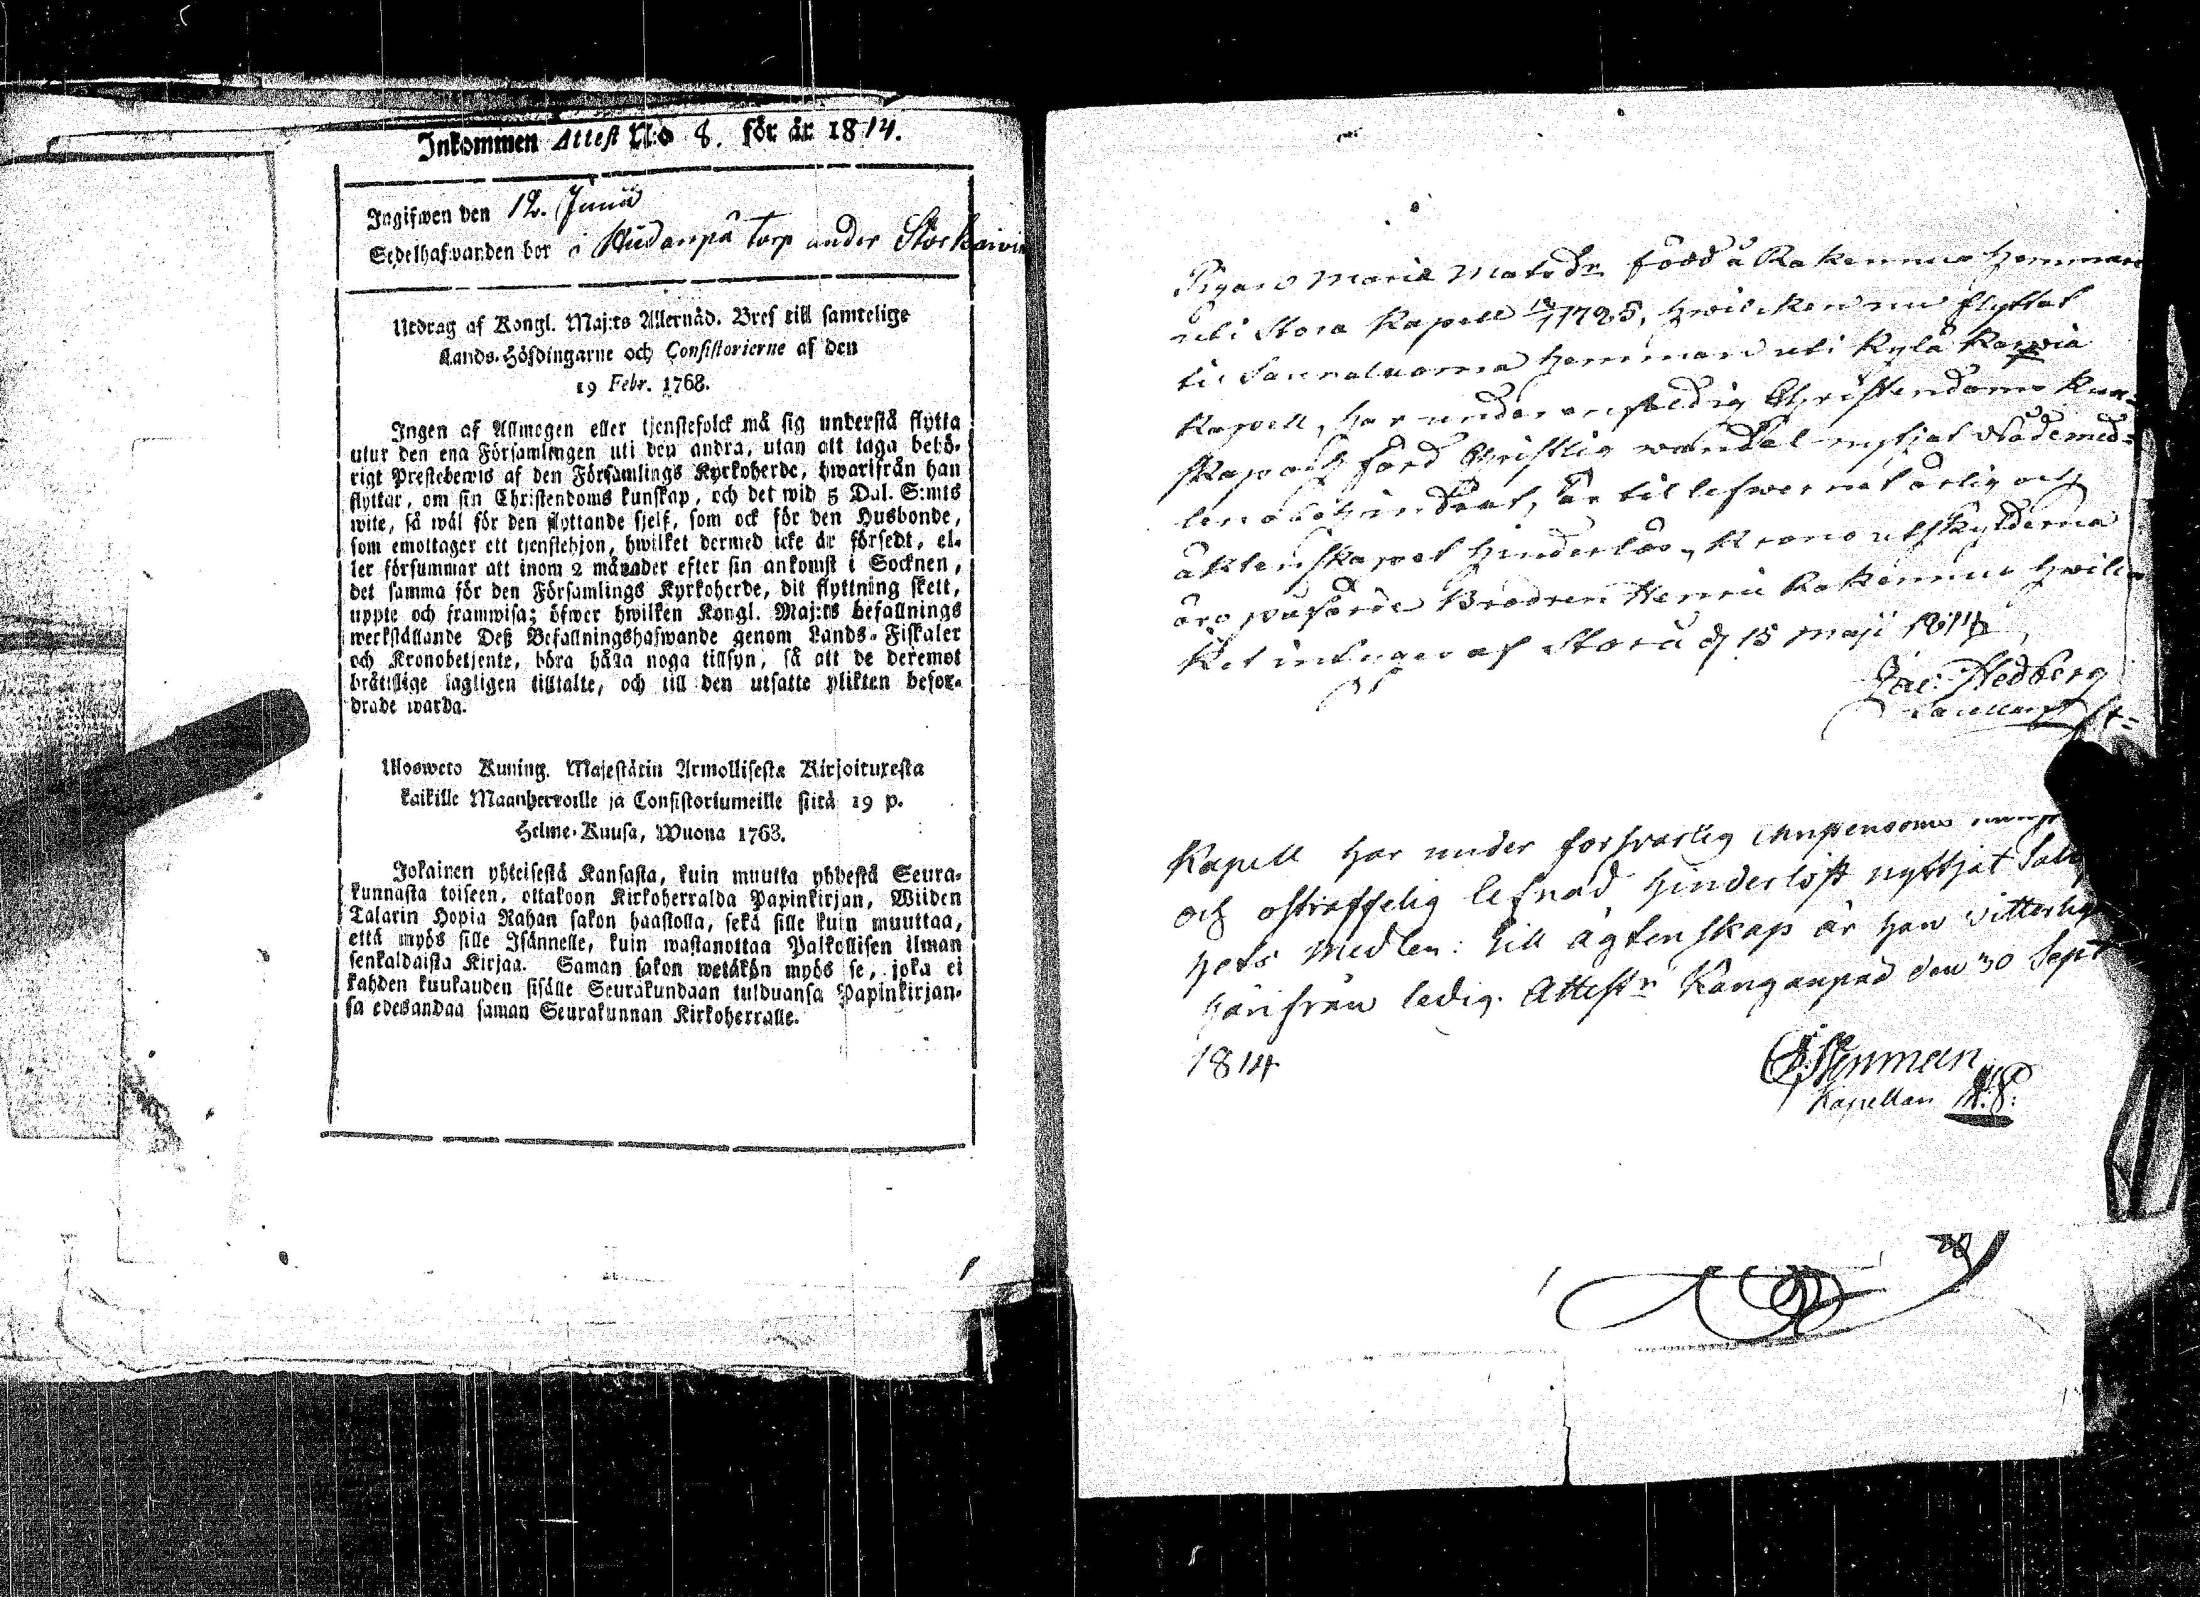 Inkommen Attest N:o 8. för år 1814.
Ingifwen den 12. Junii
Sedelhafwanden bor i torp under
Utdrag af Kongl. Maj:ts Allernåd. Bref till samtelige
Lands-Höfdingarne och Consistorierne af den
19 Febr. 1768.
Ingen af Allmogen eller tjenstefolck må sig understå flytta
utur den ena Församlingen uti den andra, utan att taga behö-
rigt Prestebewis af den Församlings Kyrkoherde, hwarifrån han
flyttar, om sin Christendoms kunskap, och det wid 5 Dal. S:mts
wite, så wäl för den flyttande sjelf, som ock för den Husbonde,
som emottager ett tjenstehjon, hwilket dermed icke är försedt, el-
ler försummar att inom 2 månader efter sin ankomst i Socknen,
det samma för den Församlings Kyrkoherde, dit flyttning skett,
uppte och framwisa; öfwer hwilken Kongl. Maj:ts befallnings
werkställande Deß Befallningshafwande genom Lands-Fiskaler
och Kronobetjente, böra hålla noga tillsyn, så att de deremot
brättslige lagligen tilltalte, och till den utsatte plikten befor-
drade warda.
Ulosweto Kuning. Majestätin Armollisesta Kirjoituxesta
kaikille Maanherroille ja Consistoriumeille siitä 19 p.
Helme-Kuusa, Wuona 1763.
Jokainen yhteisestä Kansasta, kuin muutta yhdestä Seura-
kunnasta toiseen, ottakoon Kirkoherralda Papinkirjan, Wiiden
Talarin Hopia Rahan sakon haastolla, sekä sille kuin muuttaa,
että myös sille Isännelle, kuin wastanottaa Palkollisen ilman
senkaldaista Kirjaa. Saman sakon wetäkön myös se, joka ei
kahden kuukauden sisälle Seurakundaan tulduansa Papinkirjan-
sa edesandaa saman Seurakunnan Kirkoherralle.
Pigan Maria Matsdr född å Rakennus hemman
uti Storå Kapell 1785, hwilcken nu flyttat
til hemman uti Kylä Karwia
Kapell, har under enfaldig Christendoms Kun-
skap och förd Christlig wandel nytjat Nådemed-
len obehindrat, är til lefwernet ärlig och
äktenskapet hinderlös, Krono utskylderna
äro påförde Brodren Henric Rakennus hwil-
ket intygas af Storå d 15 Maji 1814
Jac. Hedberg
Kapell har under forsvarlig
och ostraffelig lefnad hinderlöst nyttjat
hets Medlen: till ägtenskap är han vitterlig
härifrån ledig. Attestr Kanganpää den 30 Sept
1814
Stenman
Kapellan